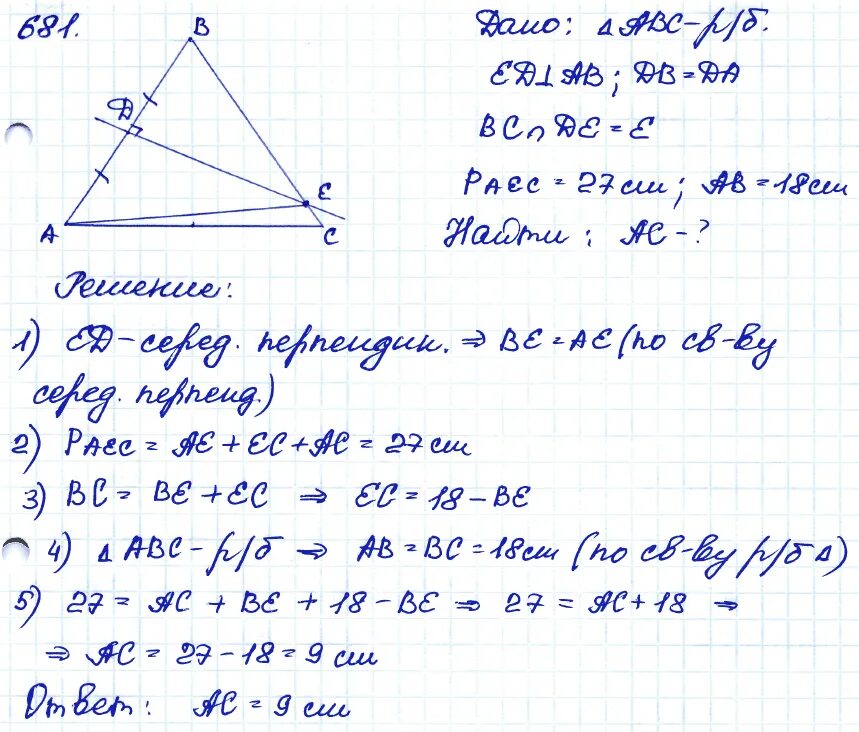 681.
B
D
E
A
C
Дано: △ABC - р/б.
ED⊥AB; DB = DA
BC∩DE = E
PAEC = 27 см; AB = 18 см
Найти: AC - ?
Решение:
1) ED - серед. перпендик. ⇒ BE = AE (по св-ву
серед. перпенд.)
2) PAEC = AE + EC + AC = 27 см
3) BC = BE + EC ⇒ EC = 18 - BE
4) △ABC - р/б ⇒ AB = BC = 18 см (по св-ву р/б △)
5) 27 = AC + BE + 18 - BE ⇒ 27 = AC + 18 ⇒
⇒ AC = 27 - 18 = 9 см
Ответ: AC = 9 см